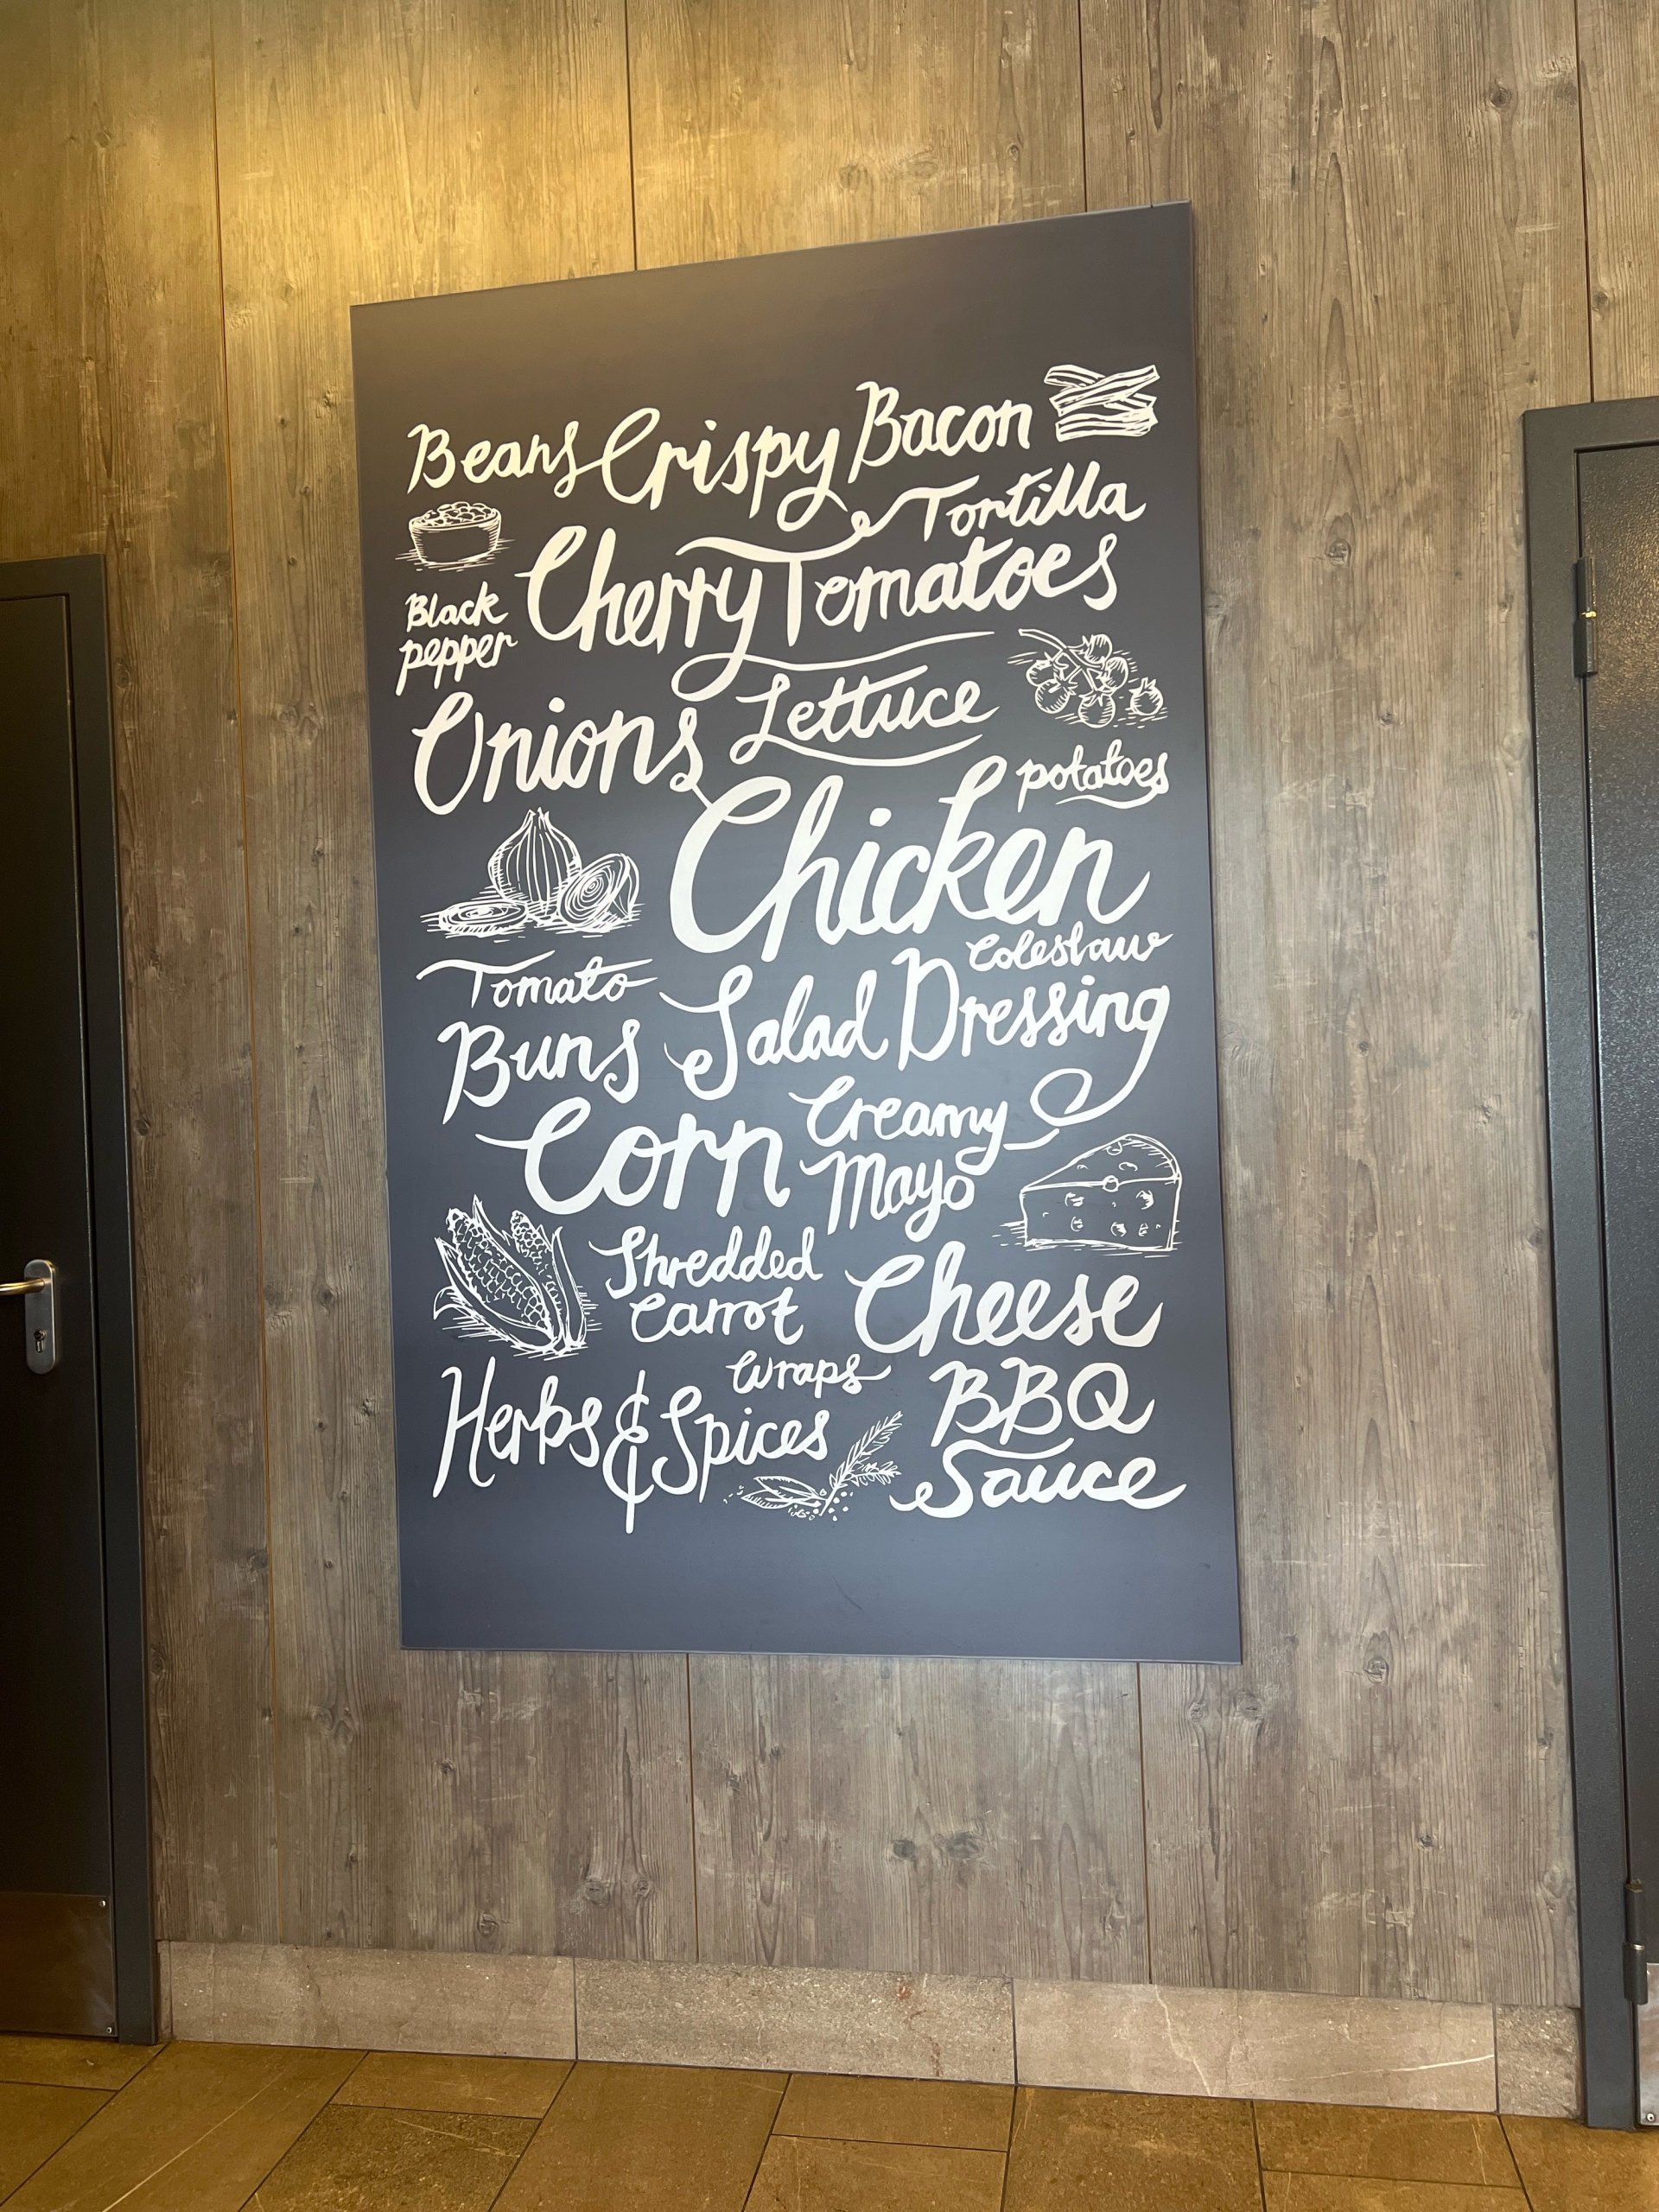 Beans Crispy Bacon
Tortilla
Cherry Tomatoes
Black
pepper
Onions Lettuce
potatoes
Chicken
Coleslaw
Tomato
Salad Dressing
Buns
Creamy
Corn
Mayo
Shredded
Carrot
Cheese
Wraps
Herbs & Spices
BBQ
Sauce